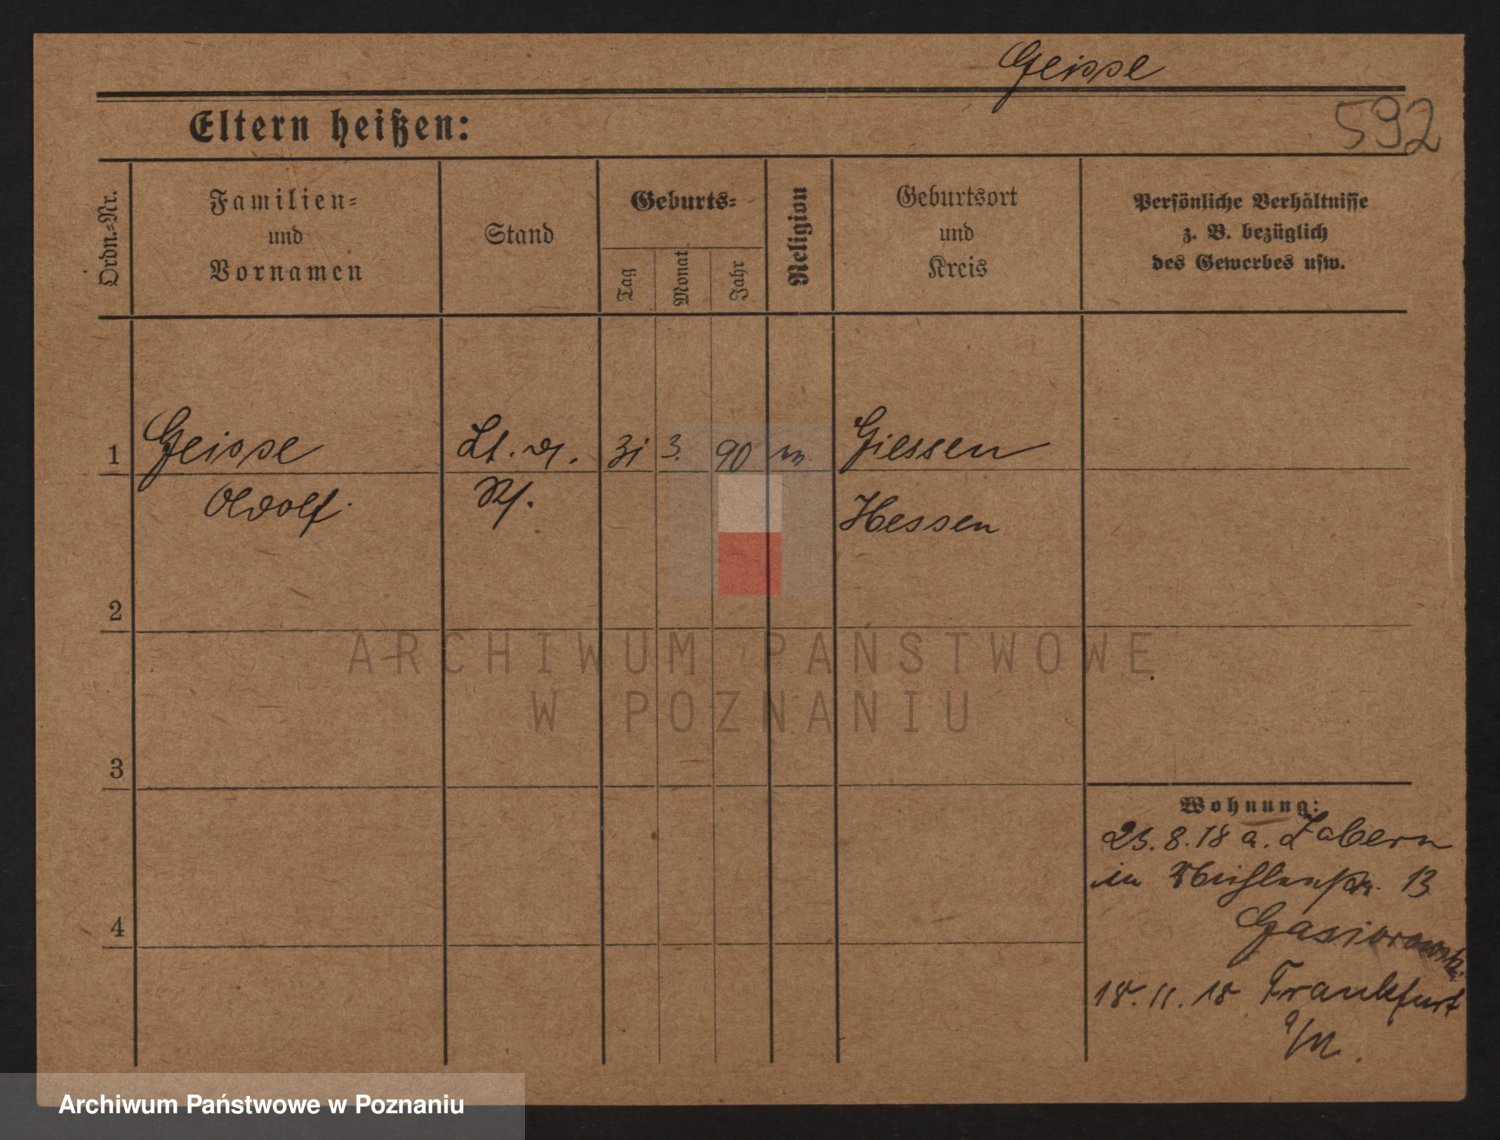 Geisse
592
Eltern heißen:
Ordn.-Nr.
Familien-
und
Vornamen
Stand
Geburts-
Tag
Monat
Jahr
Religion
Geburtsort
und
Kreis
Persönliche Verhältnisse
z. B. bezüglich
des Gewerbes usw.
1 Geisse Lt. d. 31 3. 90 Giessen
Adolf. Rs. Hessen
2
ARCHIWUM PAŃSTWOWE
W POZNANIU
3
Wohnung:
23.8.18 a. Zabern
in Mühlenstr. 13
Gasiorowski
18.11.18 Frankfurt
a/M.
4
Archiwum Państwowe w Poznaniu